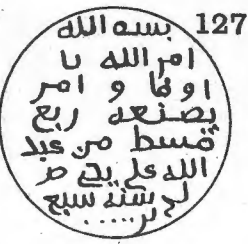 127
بسم الله
امر الله با
لوفا و امر
بصنعه ربع
قسط من عبد
الله علي يحي
سنه سبع